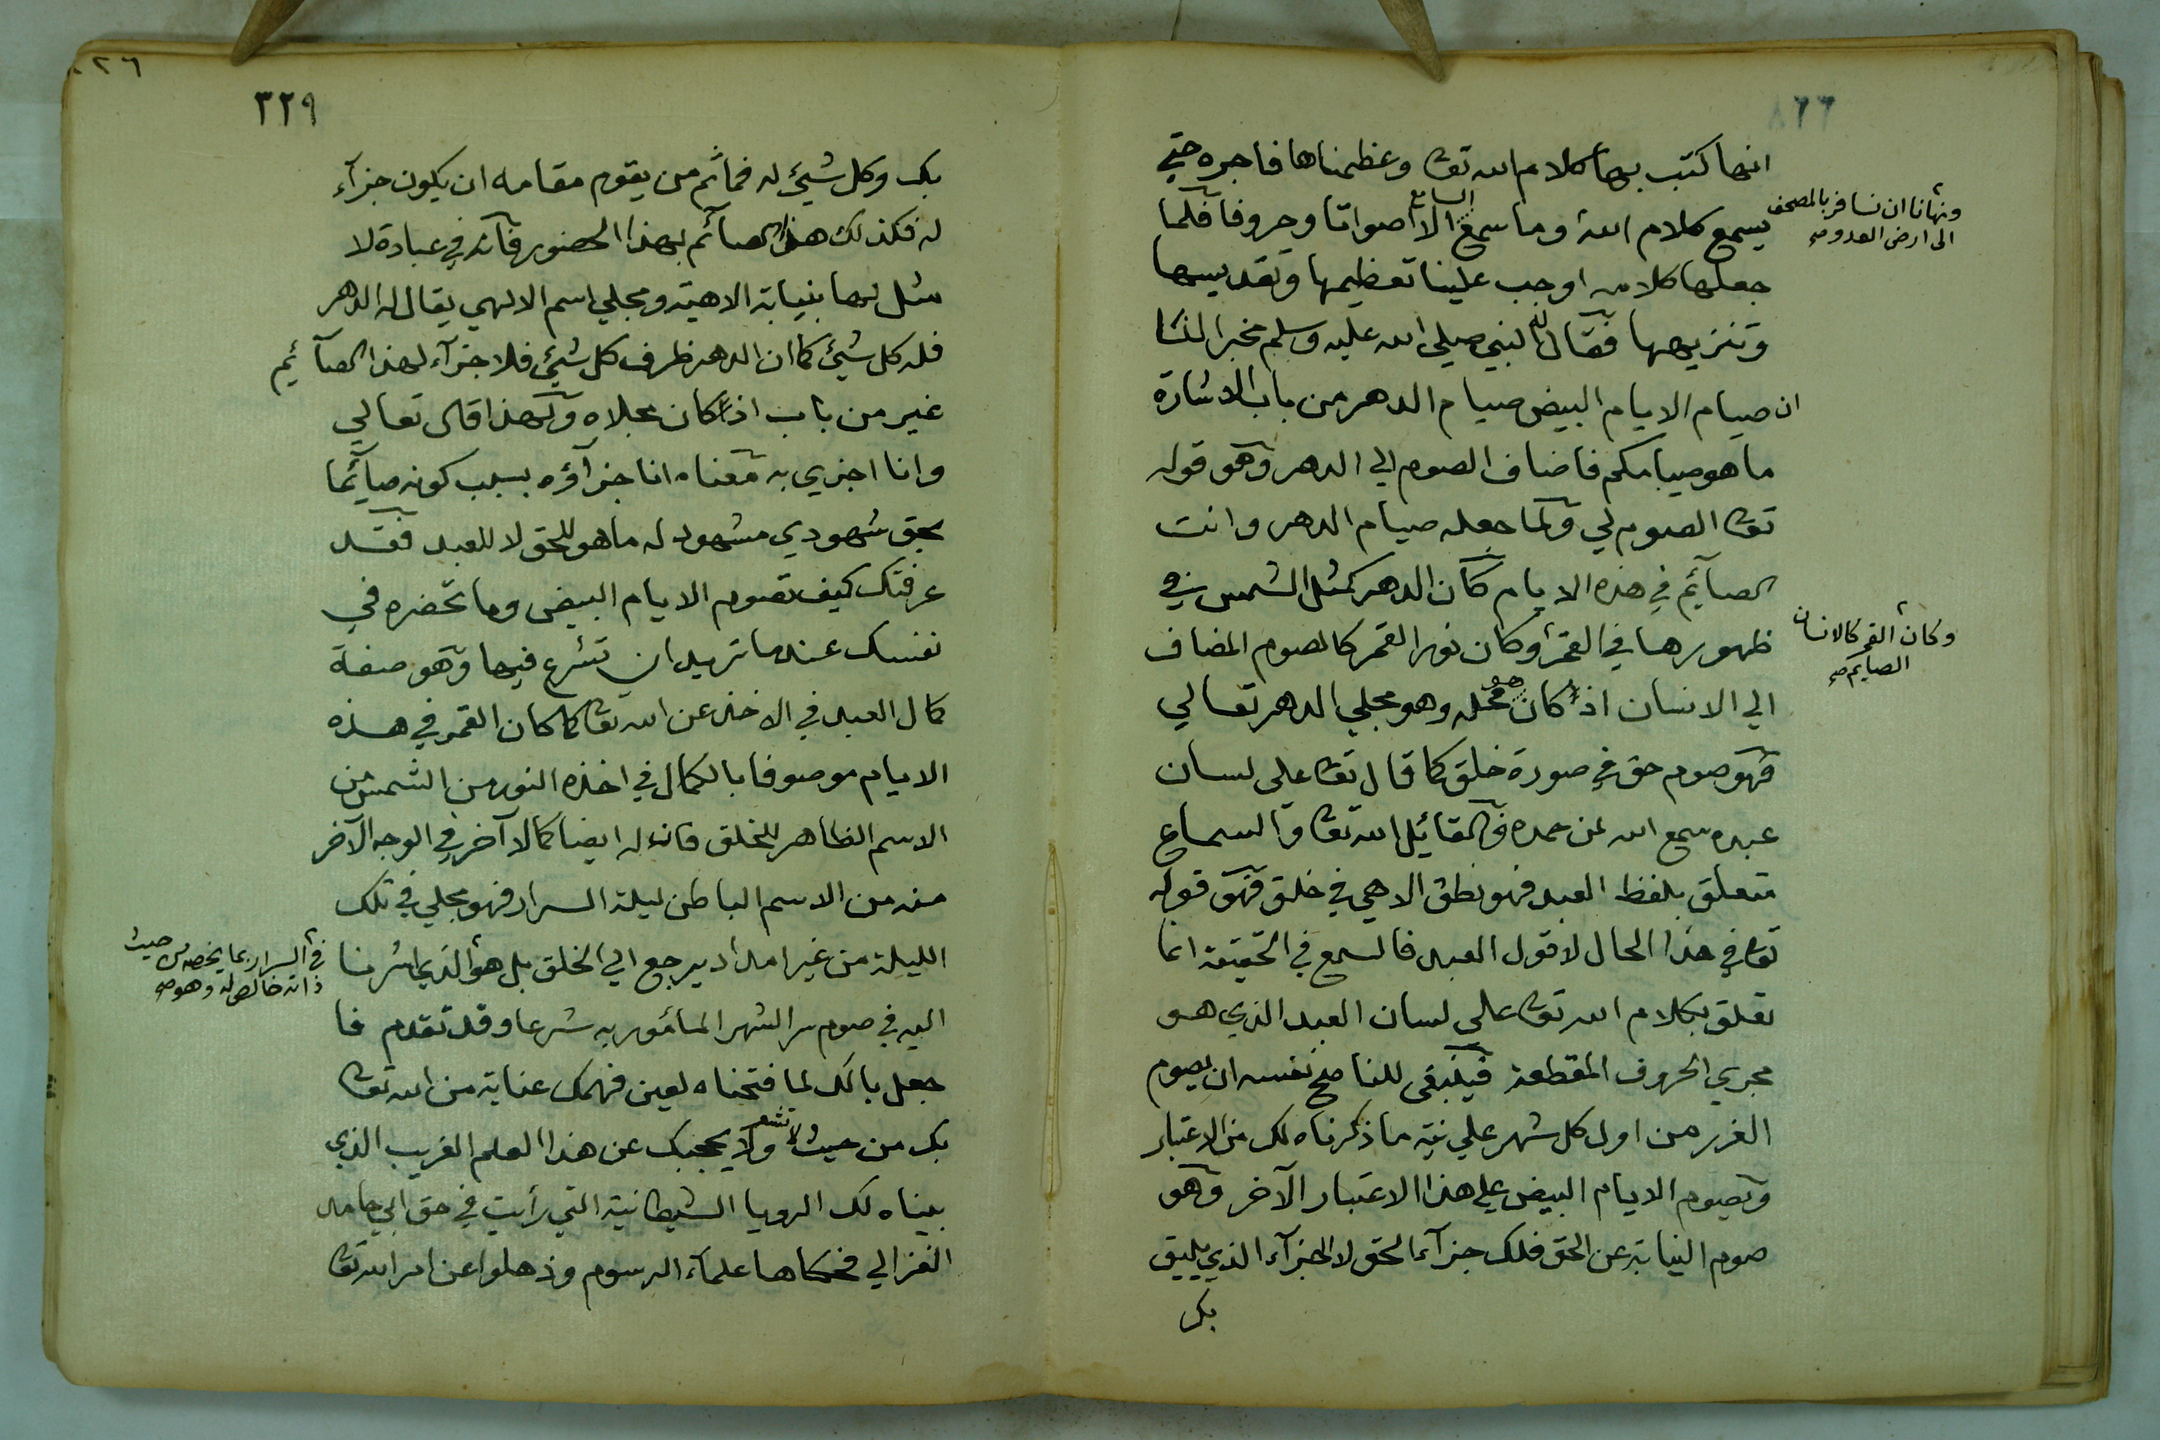 ٨٢٦
انها كتب بها كلام الله تعا وعظمناها فاجره حتي
يسمع كلام الله وما سمع السامع الا اصواتا وحروفا فلما
ونهانا ان نسافر بالمصحف
الى ارض العدو صح
جعلها كلامه اوجب علينا تعظيمها وتقديسها
وتنزيهها فقال النبي صلي الله عليه وسلم مخبرا لنا
ان صيام الايام البيض صيام الدهر من باب الاشارة
ما هو صيامكم فاضاف الصوم الي الدهر وهو قوله
تعا الصوم لي ولما جعله صيام الدهر وانت
الصآئم في هذه الايام كان الدهر كمثل الشمس في
ظهورها في القمر وكان نور القمر كالصوم المضاف
وكان القمر كالانسان
الصايم صح
الي الانسان اذ كان محله وهو مجلي الدهر تعالي
فهو صوم حق في صورة خلق كما قال تعا على لسان
عبده سمع الله لمن حمده فالقائيل الله تعا والسماع
متعلق بلفظ العبد فهو نطق الاهي في خلق فهو قوله
تعا في هذا الحال لا قول العبد فالسمع في الحقيقة انما
تعلق بكلام الله تعا على لسان العبد الذي هو
مجري الحروف المقطعة فينبغي للناصح نفسه ان يصوم
الغرر من اول كل شهر علي نية ما ذكرناه لك من الاعتبار
ويصوم الايام البيض علي هذا الاعتبار الآخر وهو
صوم النيابة عن الحق فلك جزآء الحق لا الجزآء الذي يليق
بك
٣٢٩
بك وكل شيئ له فما ثم من يقوم مقامه ان يكون جزآء
له فكذلك هذا الصآئم بهذا الحضور فانه في عبادة لا
مثل لها بنيابة الاهية ومجلي اسم الالهي يقال له الدهر
فله كل شيئ كما ان الدهر ظرف كل شيئ فلا جزآء لهذا الصآئيم
غير من باب اذ كان مجلاه ولهذا قال تعالي
وانا اجزي به معناه انا جزآؤه بسبب كونه صآئما
بحق شهودي مشهود له ما هو للحق لا للعبد فقد
عرفتك كيف تصوم الايام البيض وما تحضره في
نفسك عندما تريد ان تشرع فيها وهو صفة
كمال العبد في الاخذ عن الله تعا كما كان القمر في هذه
الايام موصوفا بالكمال في اخذه النور من الشمس من
الاسم الظاهر للخلق فان له ايضا كمالا آخر في الوجه الآخر
منه من الاسم الباطن ليلة السرار فهو مجلي في تلك
الليلة من غير امداد يرجع الي الخلق بل هو الذي اشرنا
في السرار بما يخصه من حيث
ذاته خالص له وهو صح
اليه في صوم سرر الشهر المأمور به شرعا وقد تقدم فا
جعل بالك لما فتحناه لعين فهمك عناية من الله تعا
بك من حيث لا تشعر ولا يحجبك عن هذا العلم الغريب الذي
بيناه لك الرويا الشيطانية التي رأيت في حق ابي حامد
الغزالي فحكاها علمآء الرسوم وذهلوا عن امر الله تعا